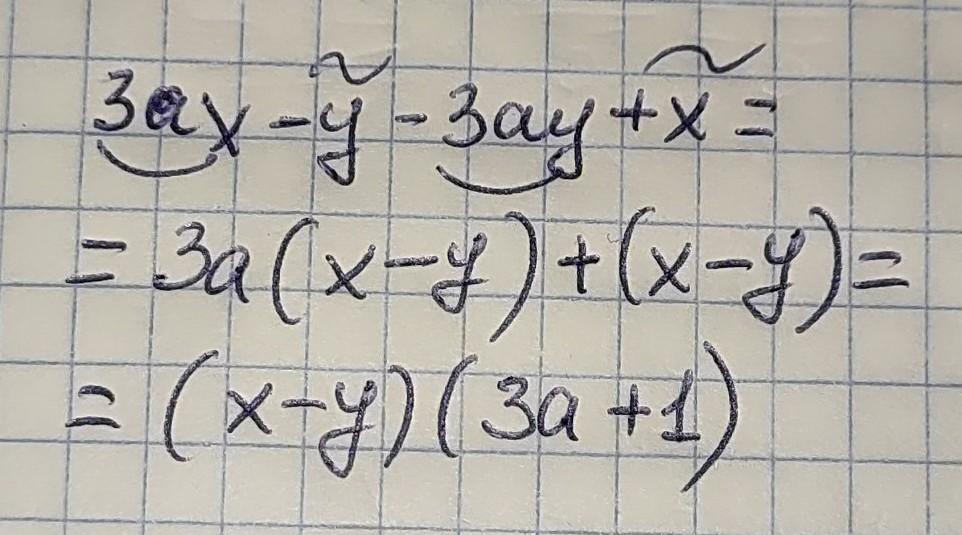 3ax - y - 3ay + x =
= 3a(x - y) + (x - y) =
= (x - y)(3a + 1)